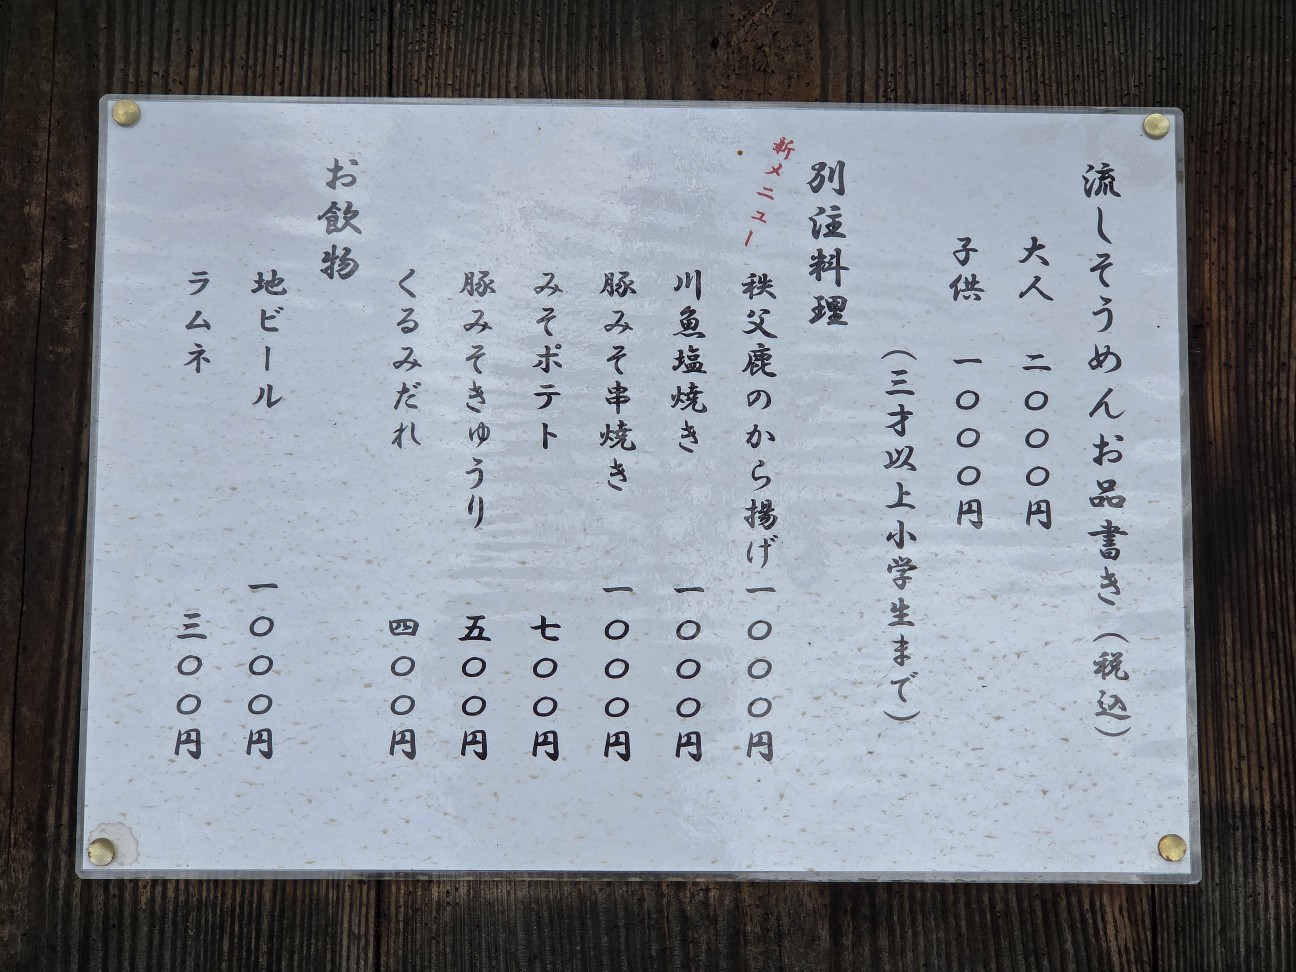 流しそうめんお品書き（税込）
大人　二〇〇〇円
子供　一〇〇〇円
（三才以上小学生まで）
別注料理
新メニュー
秩父鹿のから揚げ一〇〇〇円
川魚塩焼き　一〇〇〇円
豚みそ串焼き　一〇〇〇円
みそポテト　七〇〇円
豚みそきゅうり　五〇〇円
くるみだれ　四〇〇円
お飲物
地ビール　一〇〇〇円
ラムネ　三〇〇円